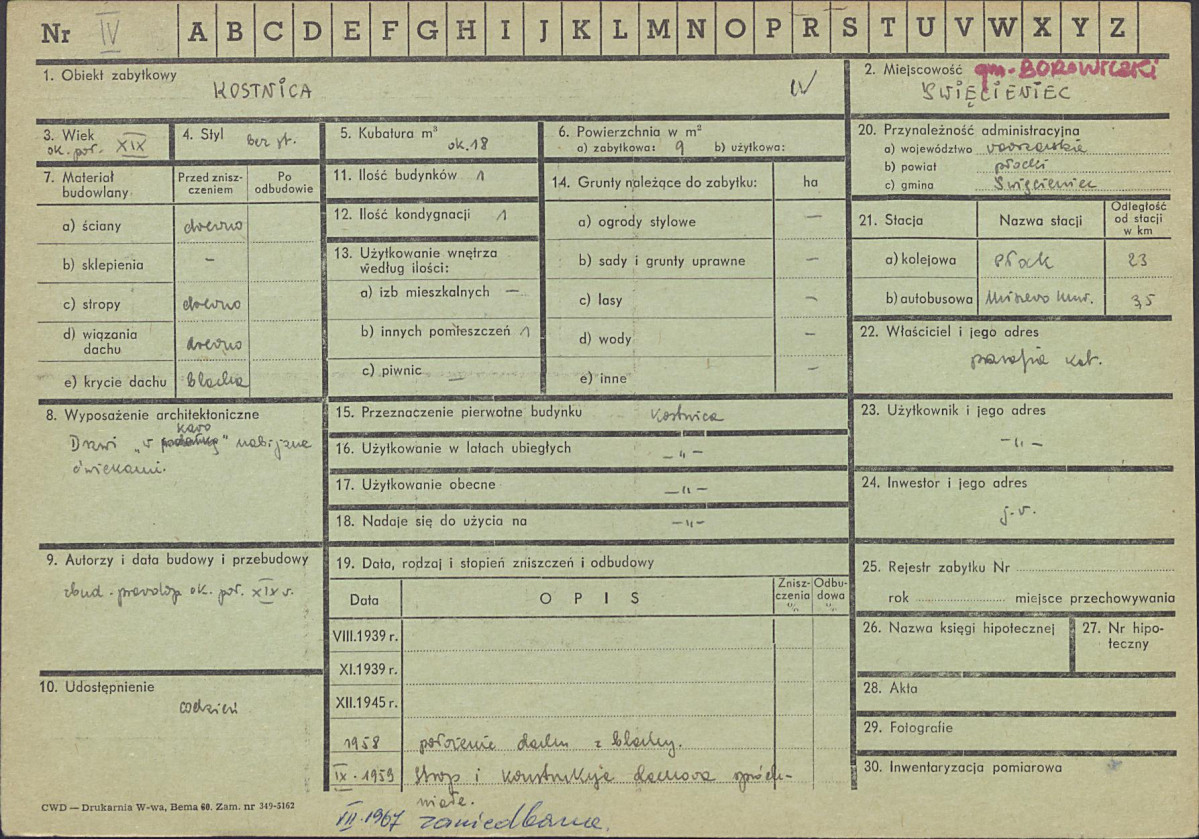 Nr IV A B C D E F G H I J K L M N O P R S T U V W X Y Z
1. Obiekt zabytkowy
KOSTNICA
IV
2. Miejscowość gm. BOROWICZKI
ŚWIĘCIENIEC
3. Wiek
ok. poł. XIX
4. Styl bez st.
5. Kubatura m³
ok. 18
6. Powierzchnia w m²
a) zabytkowa: 9 b) użytkowa:
20. Przynależność administracyjna
a) województwo warszawskie
b) powiat płocki
c) gmina Święcieniec
7. Materiał budowlany
Przed znisz-
czeniem
Po
odbudowie
a) ściany drewno
b) sklepienia –
c) stropy drewno
d) wiązania
dachu drewno
e) krycie dachu blacha
11. Ilość budynków 1
12. Ilość kondygnacji 1
13. Użytkowanie wnętrza
według ilości:
a) izb mieszkalnych —
b) innych pomieszczeń 1
c) piwnic —
14. Grunty należące do zabytku: ha
a) ogrody stylowe —
b) sady i grunty uprawne —
c) lasy —
d) wody —
e) inne —
21. Stacja Nazwa stacji
Odległość
od stacji
w km
a) kolejowa Płock 23
b) autobusowa Miszewo Mur. 3,5
22. Właściciel i jego adres
parafia kat.
8. Wyposażenie architektoniczne
karo
Drzwi „w " nabijane
ćwiekami.
15. Przeznaczenie pierwotne budynku kostnica
16. Użytkowanie w latach ubiegłych – „ –
17. Użytkowanie obecne – „ –
18. Nadaje się do użycia na – „ –
23. Użytkownik i jego adres
– „ –
24. Inwestor i jego adres
j.w.
9. Autorzy i data budowy i przebudowy
zbud. prawdop. ok. poł. XIX w.
19. Data, rodzaj i stopień zniszczeń i odbudowy
Data OPIS
Znisz-
czenia
%
Odbu-
dowa
%
VIII.1939 r.
XI.1939 r.
XII.1945 r.
1958 położenie dachu z blachy.
IX. 1959 Strop i konstrukcja dachowa spróch-
niałe.
VII. 1967 zaniedbana.
25. Rejestr zabytku Nr
rok miejsce przechowywania
26. Nazwa księgi hipotecznej
27. Nr hipo-
teczny
10. Udostępnienie
codzień
28. Akta
29. Fotografie
30. Inwentaryzacja pomiarowa
CWD — Drukarnia W-wa, Bema 60. Zam. nr 349-5162